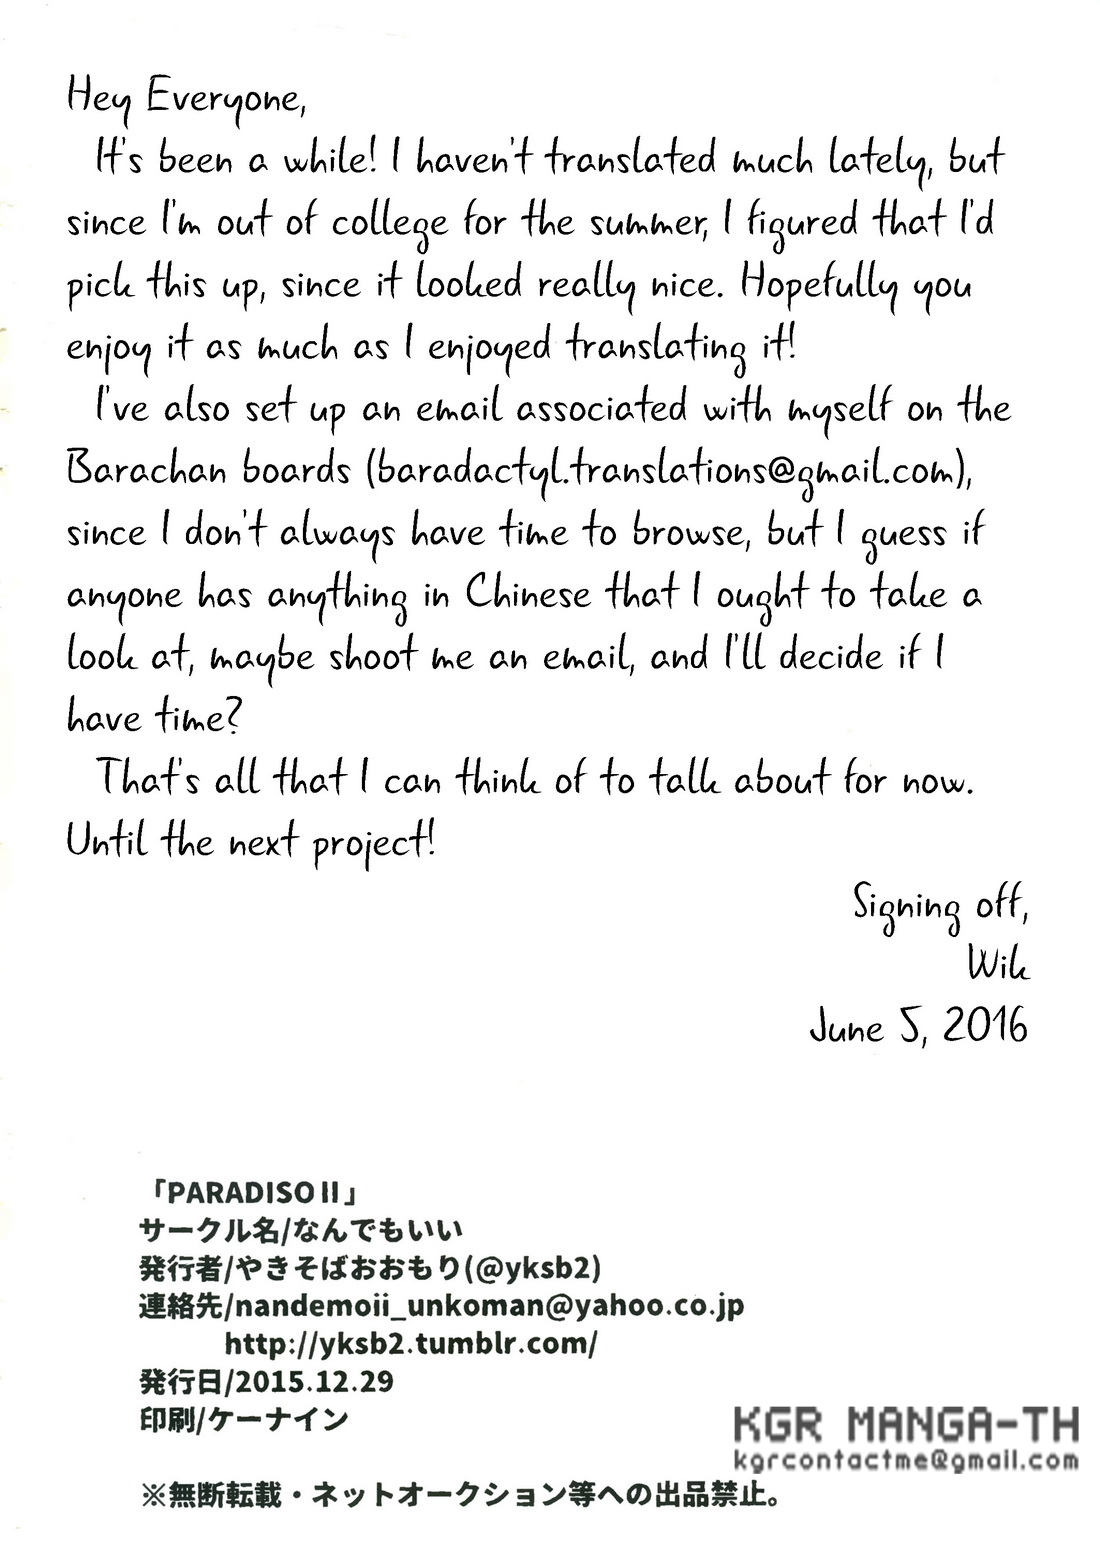 Hey Everyone,
It's been a while! I haven't translated much lately, but
since I'm out of college for the summer, I figured that I'd
pick this up, since it looked really nice. Hopefully you
enjoy it as much as I enjoyed translating it!
I've also set up an email associated with myself on the
Barachan boards (baradactyl.translations@gmail.com),
since I don't always have time to browse, but I guess if
anyone has anything in Chinese that I ought to take a
look at, maybe shoot me an email, and I'll decide if I
have time?
That's all that I can think of to talk about for now.
Until the next project!
Signing off,
Wik
June 5, 2016
「PARADISOⅡ」
サークル名/なんでもいい
発行者/やきそばおおもり(@yksb2)
連絡先/nandemoii_unkoman@yahoo.co.jp
http://yksb2.tumblr.com/
発行日/2015.12.29
印刷/ケーナイン
KGR MANGA-TH
kgrcontactme@gmail.com
※無断転載・ネットオークション等への出品禁止。